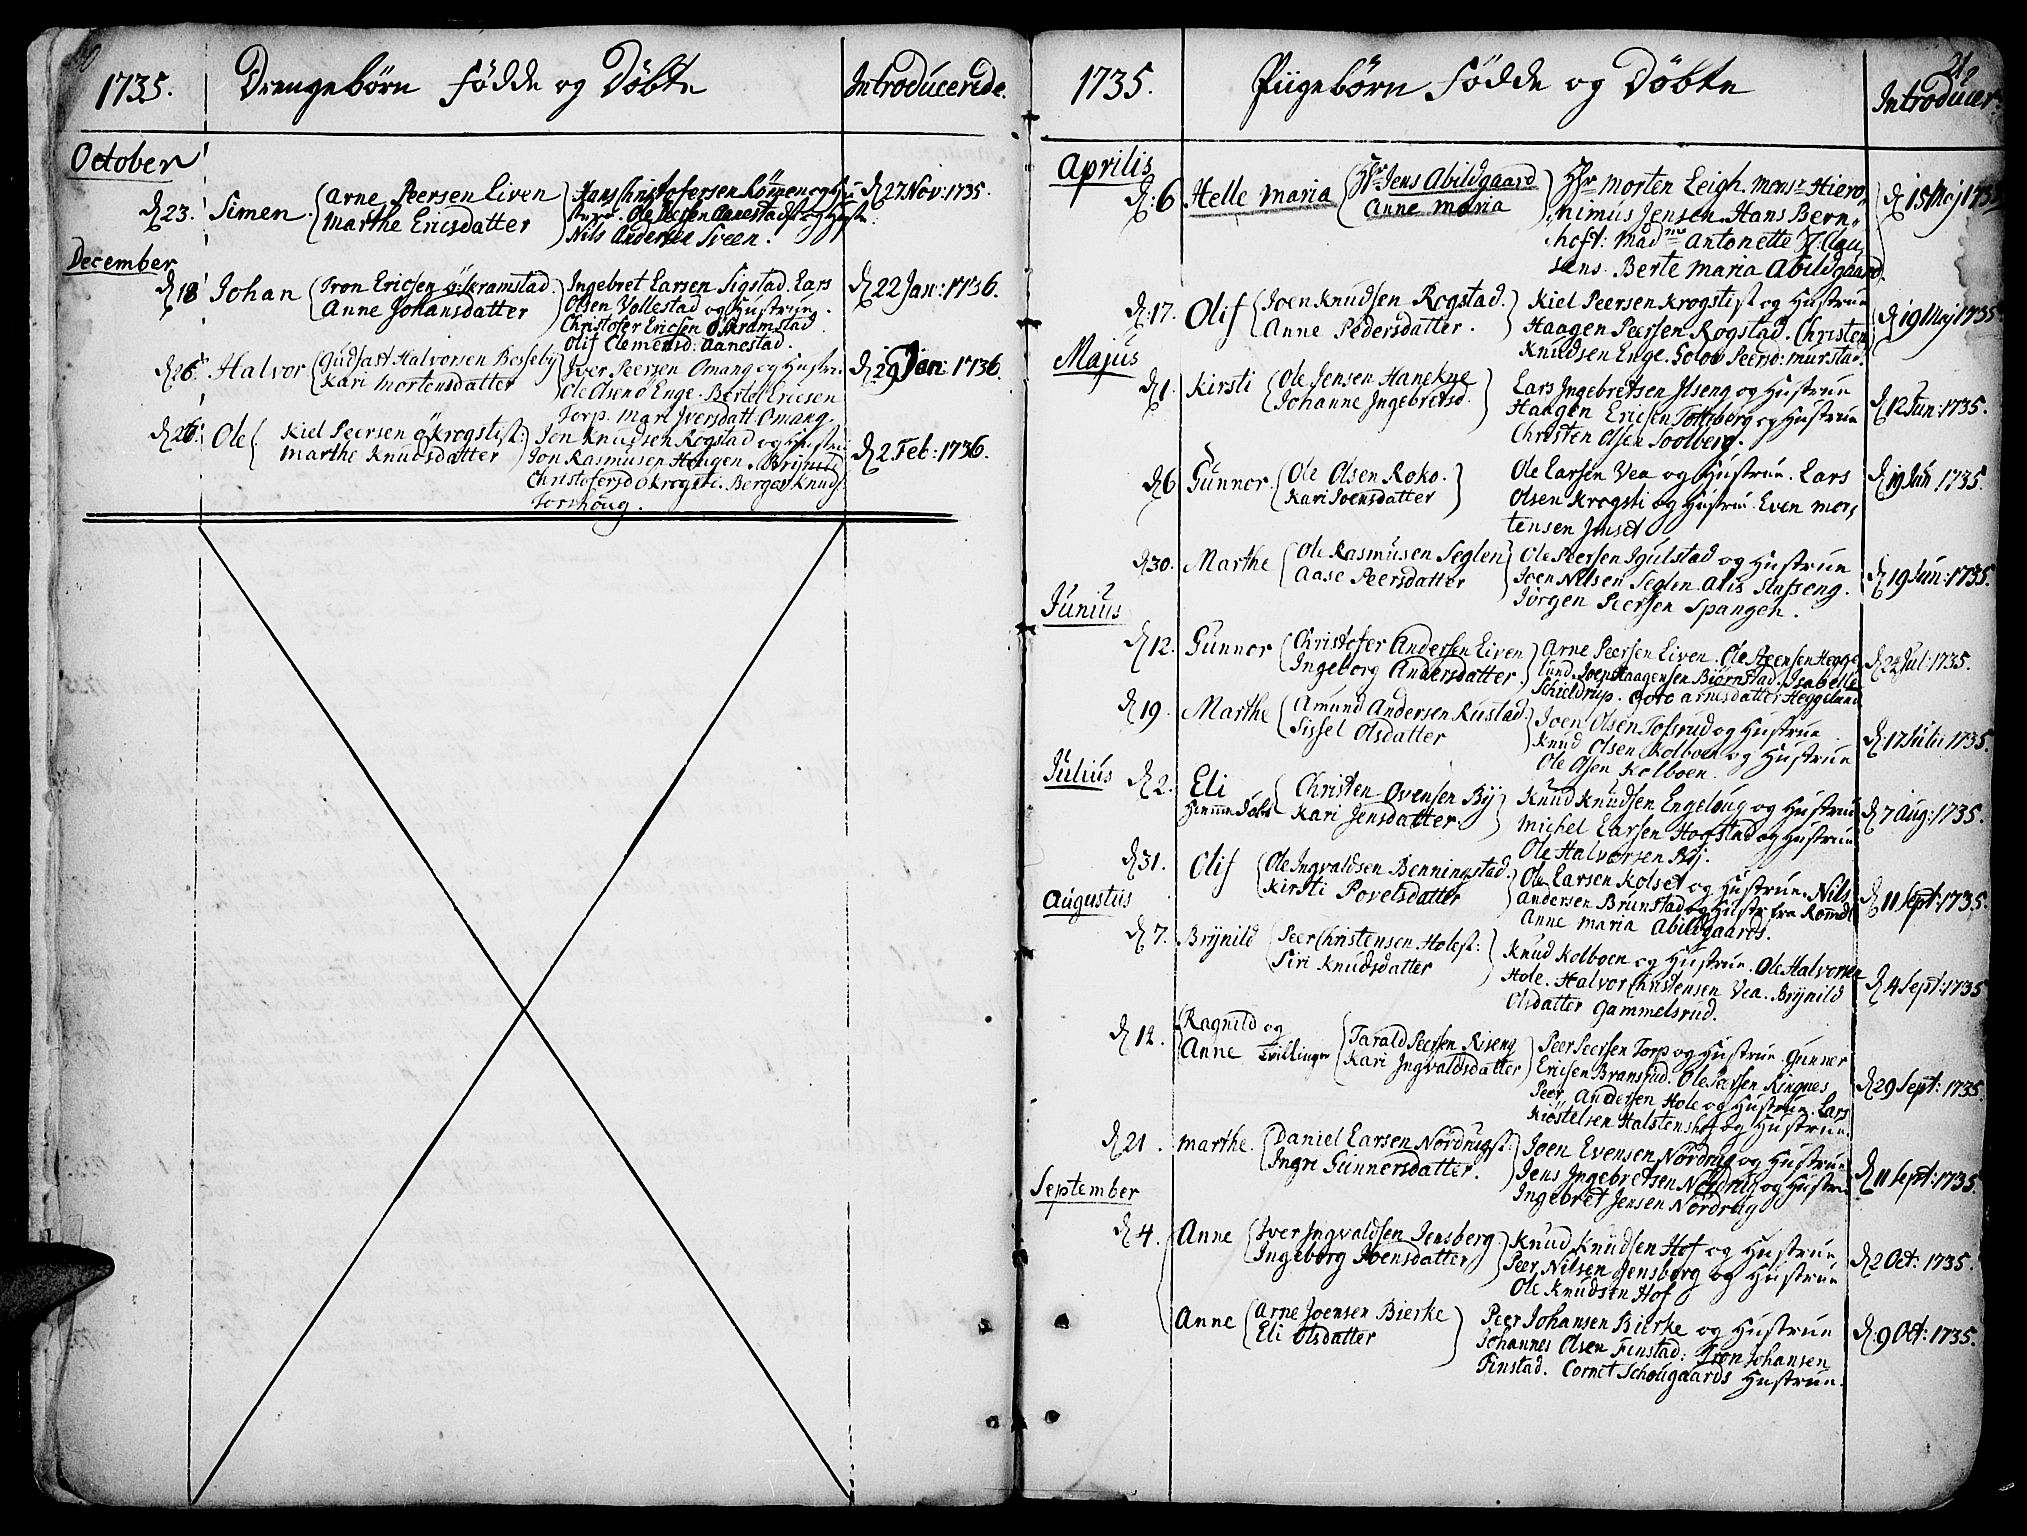 1735. Drengebørn Fødde og Døbte Introducerede.
October
d 23. Simen. Arne Peersen Liven Hans Christofersen Rømen og Hu d 27 Nov: 1735.
Marthe Ericsdatter Ole Peersen Aanestadst og Hustr:
Nils Andersen Sveen.
December
d 18 Johan Tron Ericsen ø: kramstad. Ingebret Larsen Sigstad. Lars d 22 Jan: 1736.
Anne Johansdatter Olsen Vollestad og Hustrun.
Christofer Ericsen Økramstad
Olif Clemensd: Aanestad.
d 26. Halvor Gudfast Halvorsen Besseby Iver Peersen Omang og Hustr: d 29 Jan: 1736.
Kari Mortensdatter Ole Olsen Enge. Bertel Ericsen
Torp. Mari Iversdatt Omang.
d 26. Ole Kiel Peersen økrogstist: Jon Knudsen Rogstad og Hustru d 2 Feb: 1736.
Marthe Knudsdatter Jon Rasmusen Haugen. Brynild
Christofersd økrogsti. Berger Knuds
Torshoug.
21
1735. Piigebørn Fødde og Døbte Introducer:
Aprilis
d: 6 Helle Maria Hr Jens Abildgaard Hr Morten Leigh. Monsr Hiero, d 15 Maj 1735
Anne Maria nimus Jensen. Hans Bern,
hoft: Madme Antonette Clau
sens. Berte Maria Abildgaard.
d. 17. Olif Joen Knudsen Rogstad. Kiel Peersen Krogstist og Hustrun d 19 Maj 1735
Anne Pedersdatter. Haagen Peersen Rogstad. Christen
Knudsen Enge. Solov Peersd: Murstad.
Majus
d 1. Kirsti Ole Jensen Hanekne Lars Ingebretsen Ilseng og Hustrun d 12 Jun: 1735.
Johanne Ingebretsd. Haagen Ericsen Tottberg og Hustrun
Christen Olsen Soolberg.
d 6 Gunnor. Ole Olsen Roko. Ole Larsen Vea og Hustrun. Lars d 19 Jun 1735
Kari Joensdatter Olsen Krogsti og Hustrun. Even Mor,
tensen Jonset
d 30. Marthe Ole Rasmusen Seglen Ole Peersen Igulstad og Hustrun d 19 Jun: 1735.
Aase Peersdatter Joen Nilsen Seglen. Alis Stafseng.
Jørgen Peersen Spangen.
Junius
d 12. Gunnor Christofer Andersen Liven Arne Peersen Liven. Ole Steensen Hegge d 24 Jul: 1735.
Ingeborg Andersdatter. lund. Joen Haagensen Biørnstad. Isabelle
Schieldrup. Goro Arnesdatter Heggelund
d 19. Marthe Amund Andersen Rustad. Joen Olsen Tofsrud og Hustrun. d 17 Julii 1735.
Sissel Olsdatter Knud Olsen Kolboen og Hustrun
Ole Olsen Kolboen.
Julius d 2. Eli Christen Ovensen By Knud Knudsen Engeloug og Hustrun d 7 Aug: 1735.
Hiemme Døbt Kari Jensdatter Michel Larsen Hogstad og Hustrun
Ole Halvorsen By.
d 31. Olif Ole Ingvaldsen Benningstad. Ole Larsen Kolset og Hustrun. Nils d 11 Sept: 1735.
Kirsti Povelsdatter Andersen Brunstad og Hustr fra Romd
Anne Maria Abildgaards.
Augustus
d 7. Brynild Peer Christensen Holest: Knud Kolboen og Hustrun. Ole Halvorsen d 4 Sept: 1735
Siri Knudsdatter Hole. Halvor Christensen Vea. Brynild
Olsdatter Gammelsrud.
d 14. Ragnild og Tarald Peersen Riseng Peer Peersen Torp og Hustrun. Gunner d 29 Sept: 1735
Anne Tvillinger Kari Ingvaldsdatter Ericsen Bransrud. Ole Peersen Ringnes
Peer Andersen Hole og Hustrun. Lars
Kiøstelsen Halstenshof og Hustrun.
d 21. Marthe. Daniel Larsen Nordrugst: Joen Evensen Nordrug og Hustrun d 11 Sept: 1735.
Ingri Gunnersdatter. Jens Ingebretsen Nordrug og Hustrun
Ingebret Jensen Nordrug
September
d 4. Anne Iver Ingvaldsen Jensberg. Knud Knudsen Hof og Hustrun d 2 Oct: 1735.
Ingeborg Joensdatter Peer Nilsen Jensberg og Hustrun
Ole Knudsen Hof
Anne Arne Joensen Bierke Peer Johansen Bierke og Hustrun d. 9 Oct: 1735.
Eli Olsdatter Johannes Olsen Finstad: Tron Johansen
Finstad. Cornet Schougaards Hustrun.